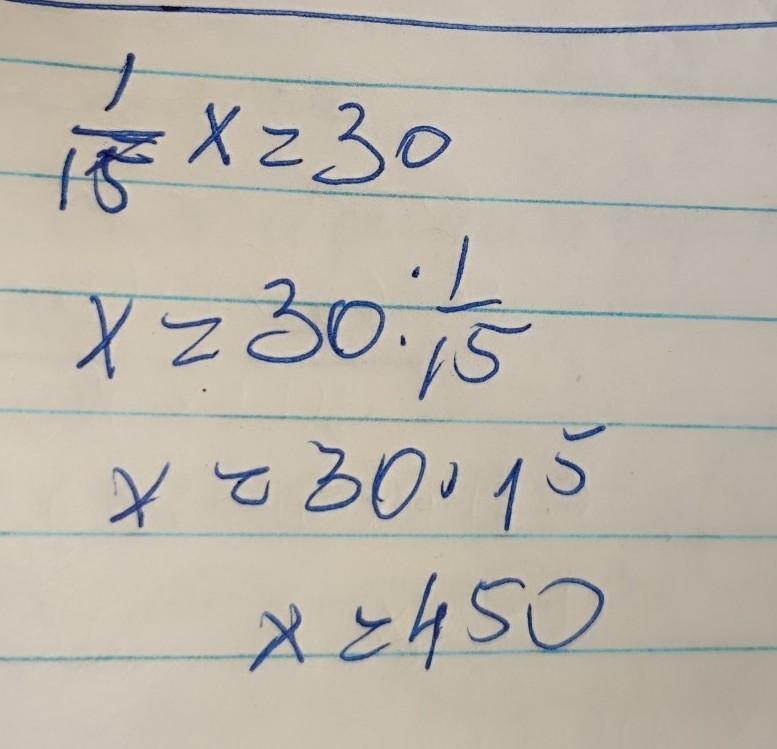 1/15 x = 30
x = 30 : 1/15
x = 30 · 15
x = 450